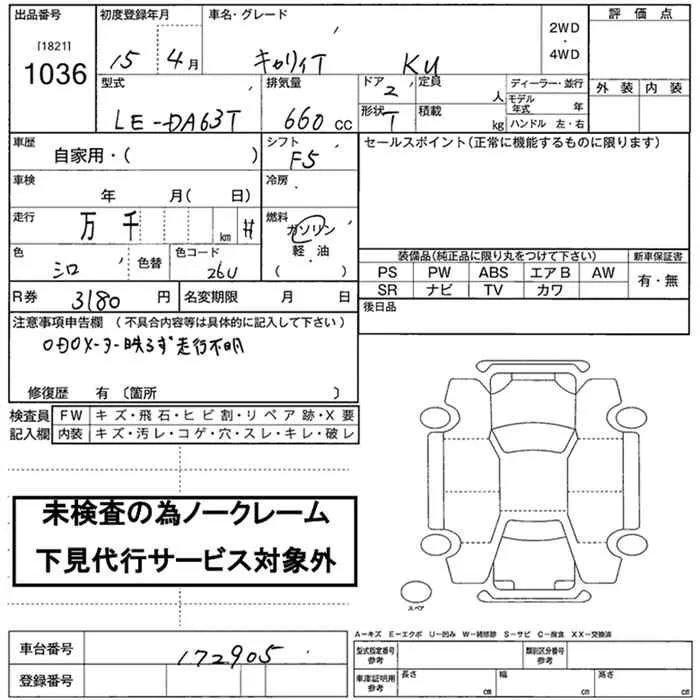 出品番号 初度登録年月 車名・グレード 2WD・4WD 評価点
[1821]
1036 15 4月 キャリィT KU
型式 排気量 ドア 2 定員 人 ディーラー・並行 外装 内装
LE-DA63T 660 cc 形状 T 積載 kg モデル年式 年
ハンドル 左・右
車歴 自家用・( ) シフト F5 セールスポイント(正常に機能するものに限ります)
車検 年 月( 日) 冷房
走行 万 千 km # 燃料 ガソリン
軽・油
( )
色 シロ 色替 色コード 26U
装備品(純正品に限り丸をつけて下さい) 新車保証書
PS PW ABS エアB AW 有・無
SR ナビ TV カワ
R券 3180 円 名変期限 月 日 後日品
注意事項申告欄 (不具合内容等は具体的に記入して下さい)
ODOメーター映らず走行不明
修復歴 有 〔箇所 〕
検査員 FW キズ・飛石・ヒビ割・リペア跡・X要
記入欄 内装 キズ・汚レ・コゲ・穴・スレ・キレ・破レ
未検査の為ノークレーム
下見代行サービス対象外
スペア
A-キズ E-エクボ U-凹み W-補修跡 S-サビ C-腐食 XX-交換済
車台番号 172905 型式指定番号 参考 類別区分番号 参考
登録番号 車庫証明用 参考 長さ cm 幅 cm 高さ cm